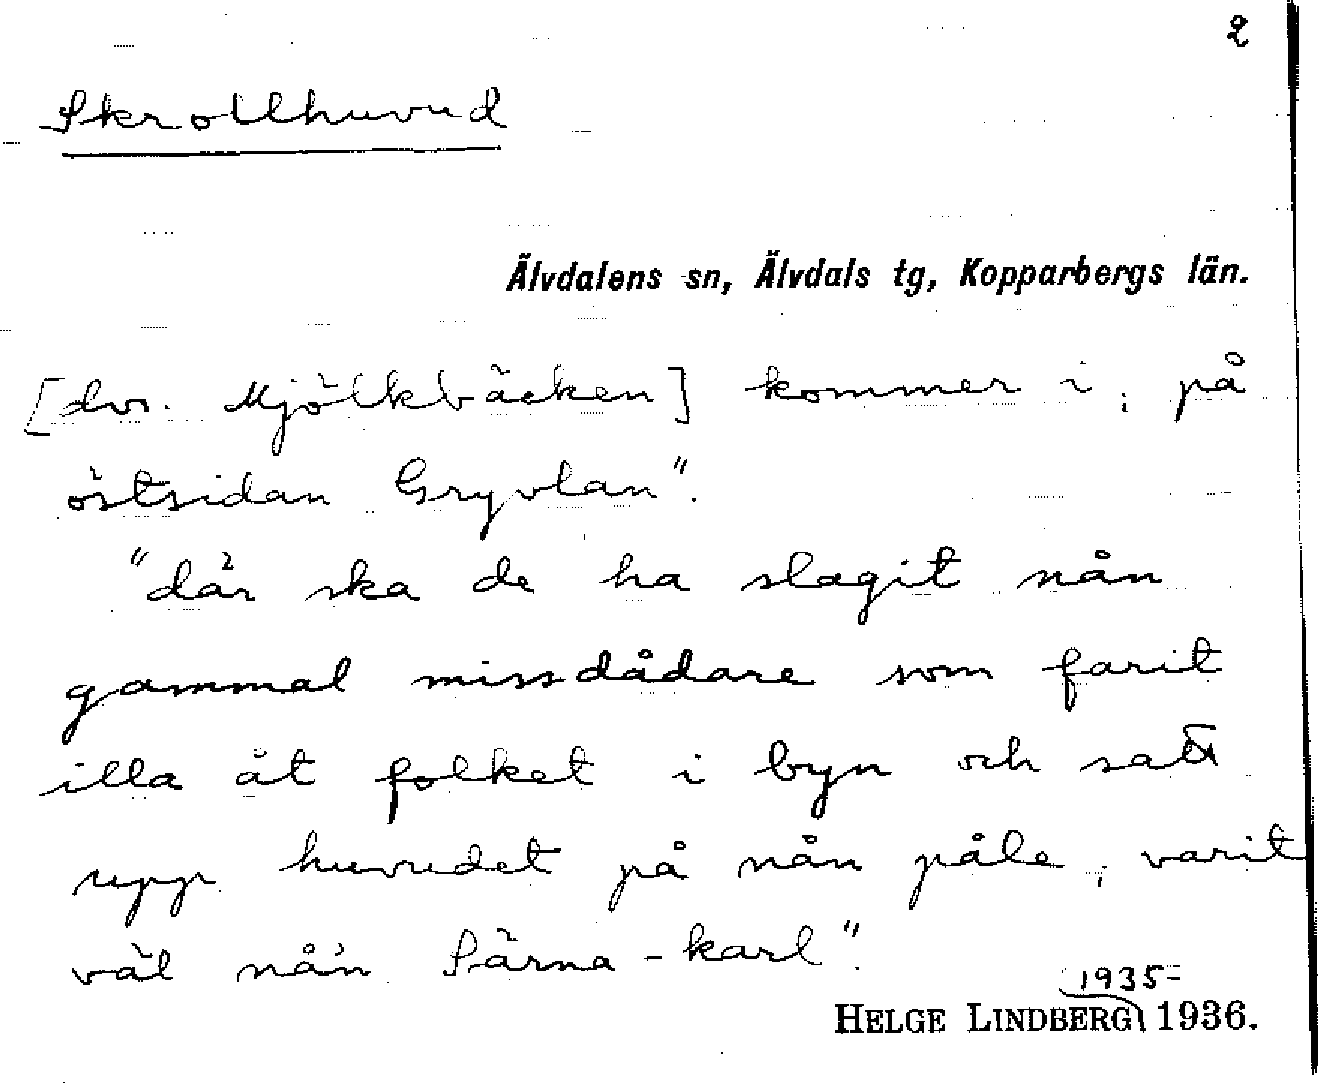 2
Skrollhuvud
Älvdalens sn, Älvdals tg, Kopparbergs län.
[dvs. Mjölkbäcken] kommer i; på
östsidan Gryvlan".
"där ska de ha slagit nån
gammal missdådare som farit
illa åt folket i byn och satt
upp huvudet på nån påle; varit
väl nån Särna-karl".
1935-
HELGE LINDBERG 1936.